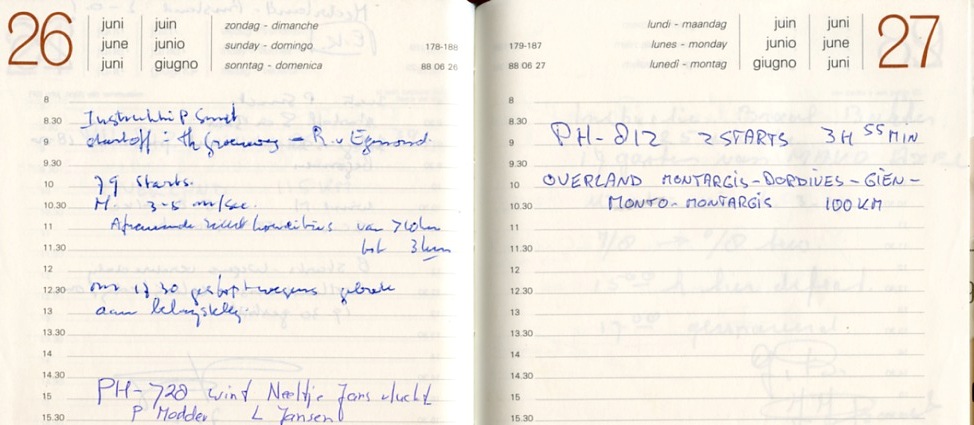 26
juni juin zondag - dimanche
june junio sunday - domingo 178-188
juni giugno sonntag - domenica 88 06 26
8
8.30 Instrukti P Smit
9 startoff : th Groeneweg - R. v Egmond.
9.30
10 79 starts.
10.30 H. 3-5 m/sec.
11 Afnemende zicht van >10km
11.30 tot 3km
12
12.30 om 17 30 gestopt wegens gebrek
13 aan belangstelling.
13.30
14
14.30
15 PH-728 wint Neeltje Jans vlucht
15.30 P Modder L Jansen
27
lundi - maandag juin juni
179-187 lunes - monday junio june
88 06 27 lunedì - montag giugno juni
8
8.30
9 PH-812 2 STARTS 3H 55 MIN
9.30
10 OVERLAND MONTARGIS-DORDIVES-GIEN-
10.30 MONTO-MONTARGIS 100 KM
11
11.30
12
12.30
13
13.30
14
14.30
15
15.30